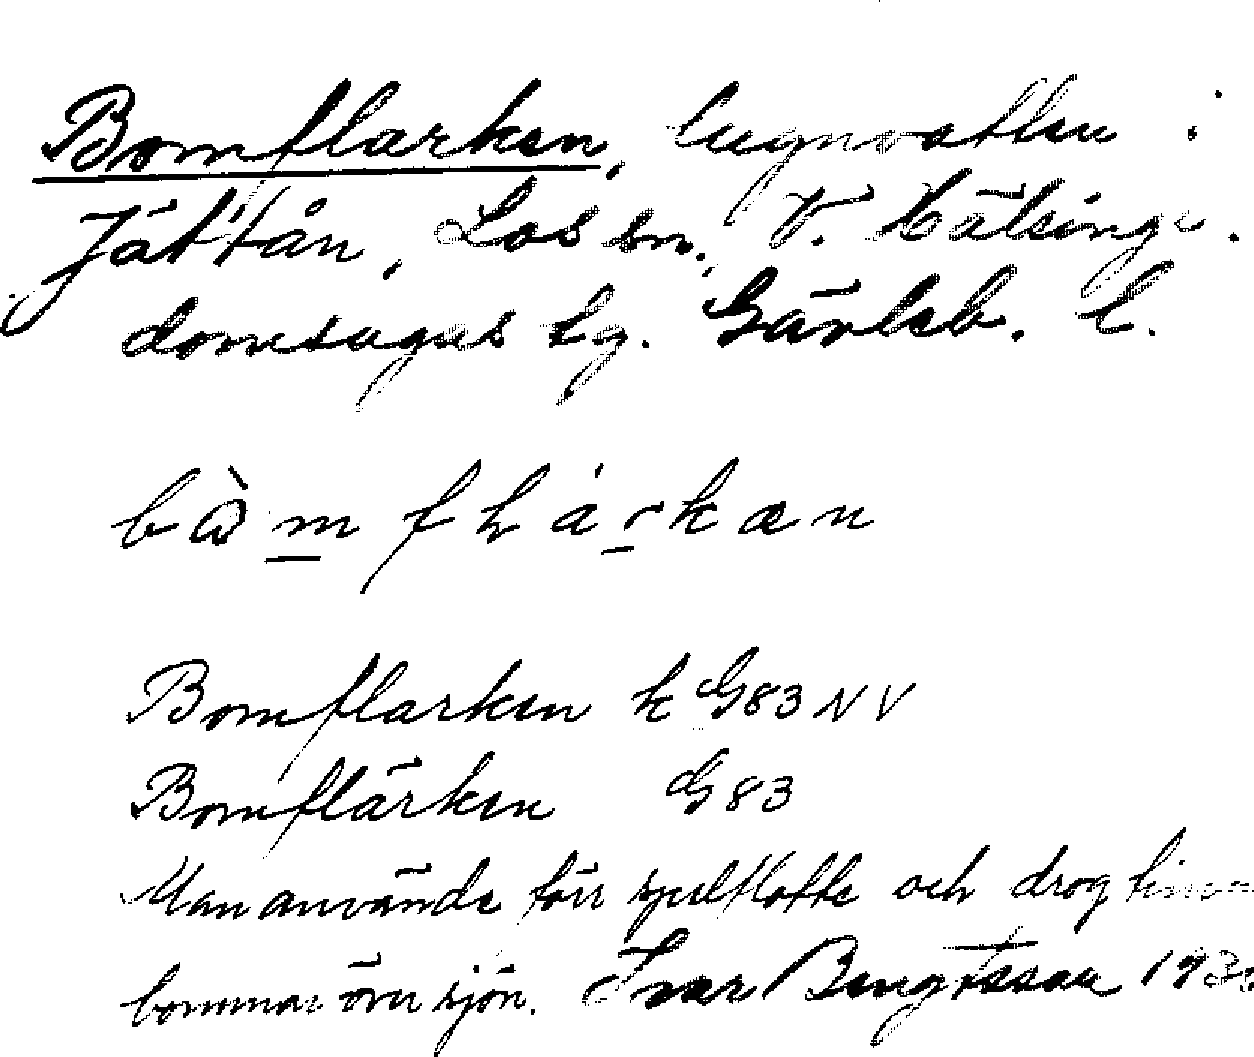 Bomflarken, lugnvatten i
Jättån, Los sn., V. Hälsingl.
domsagas tg. Gävleb. l.
bὼm flárkæn
Bomflarken k G83 NV
Bomflärken G83
Man använde förr spelflotte och drog
bommar över sjön. Ivar Bengtsson